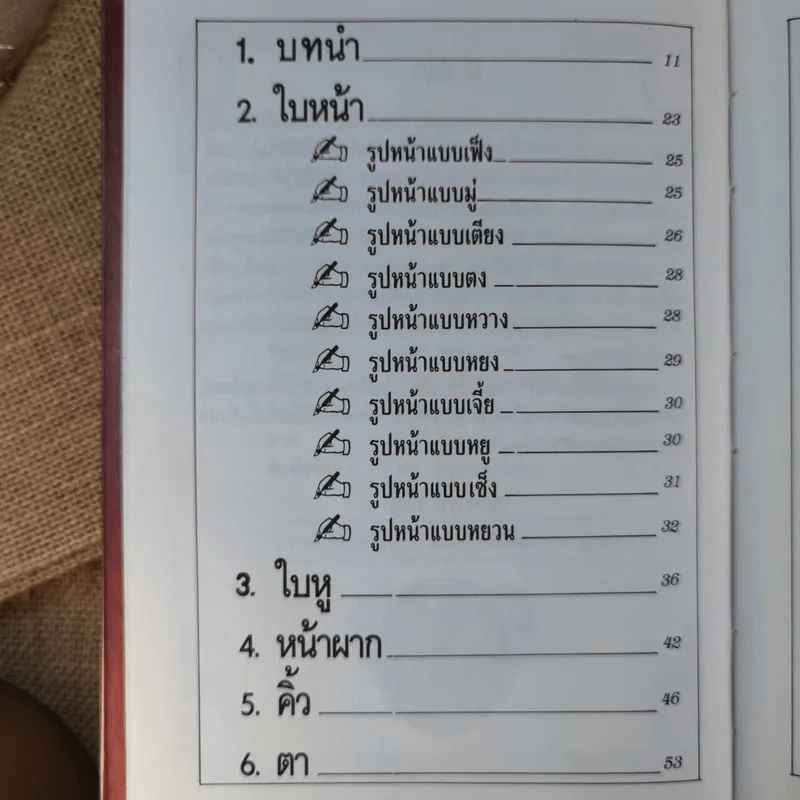 1. บทนำ 11
2. ใบหน้า 23
รูปหน้าแบบเฟ็ง 25
รูปหน้าแบบมู่ 25
รูปหน้าแบบเตียง 26
รูปหน้าแบบตง 28
รูปหน้าแบบหวาง 28
รูปหน้าแบบหยง 29
รูปหน้าแบบเจี้ย 30
รูปหน้าแบบหยู 30
รูปหน้าแบบเซ็ง 31
รูปหน้าแบบหยวน 32
3. ใบหู 36
4. หน้าผาก 42
5. คิ้ว 46
6. ตา 53